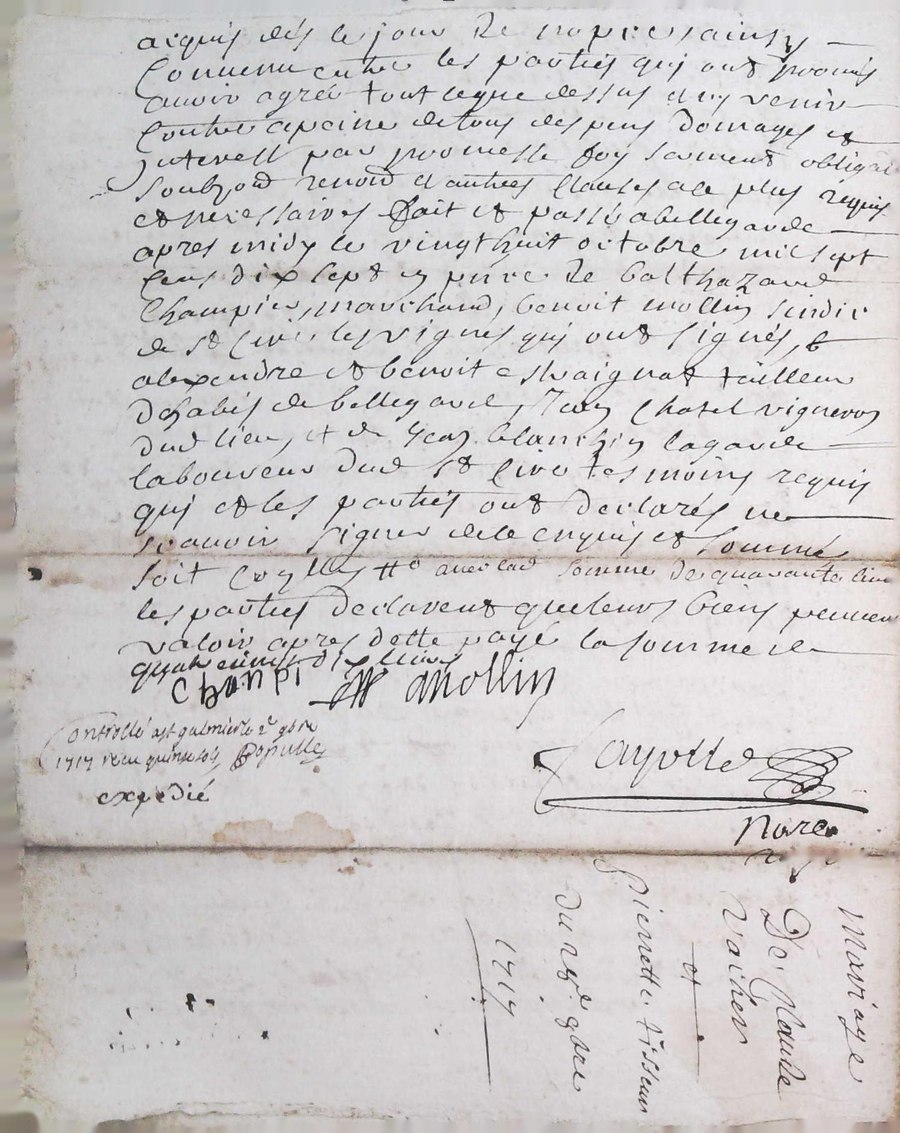 acquis dés le jour de nopces ainsy
Convenu entre les parties qui ont promis
avoir agreé tout ceque dessus a y venir
Contre apeine de tous despens domages et
interest par promesse foy serment obliga
soubz renon d'autres clauses ale plus requis
et necessaires fait et passé a bellegarde
apres midy le vingthuit octobre mil sept
Cens dix sept en pnce de balthazard
Champier, marchand, benoit mollin sindic
de st Cire les vignes qui ont signés, &
alexendre et benoit tailleur
dhabis de bellegarde, Jean Chatel vigneron
dud lieu, et de Jean blanchin lagarde
laboureur dud st Cire tesmoins requis
qui et les parties ont declarés ne
scavoir signer de ce enquis et sommé
soit avec lad somme de quarante livr
les parties declarent que leurs biens peuven
valoir apres dette payé la somme de
quatre cent dix livres
Champi mollin
Controllé a st galmier le 2e 9bre
1717 receu quinse sols
expedié
Nore
Mariage
De Claude
Vacher
et
Pierrette tisseur
du 8bre
1717